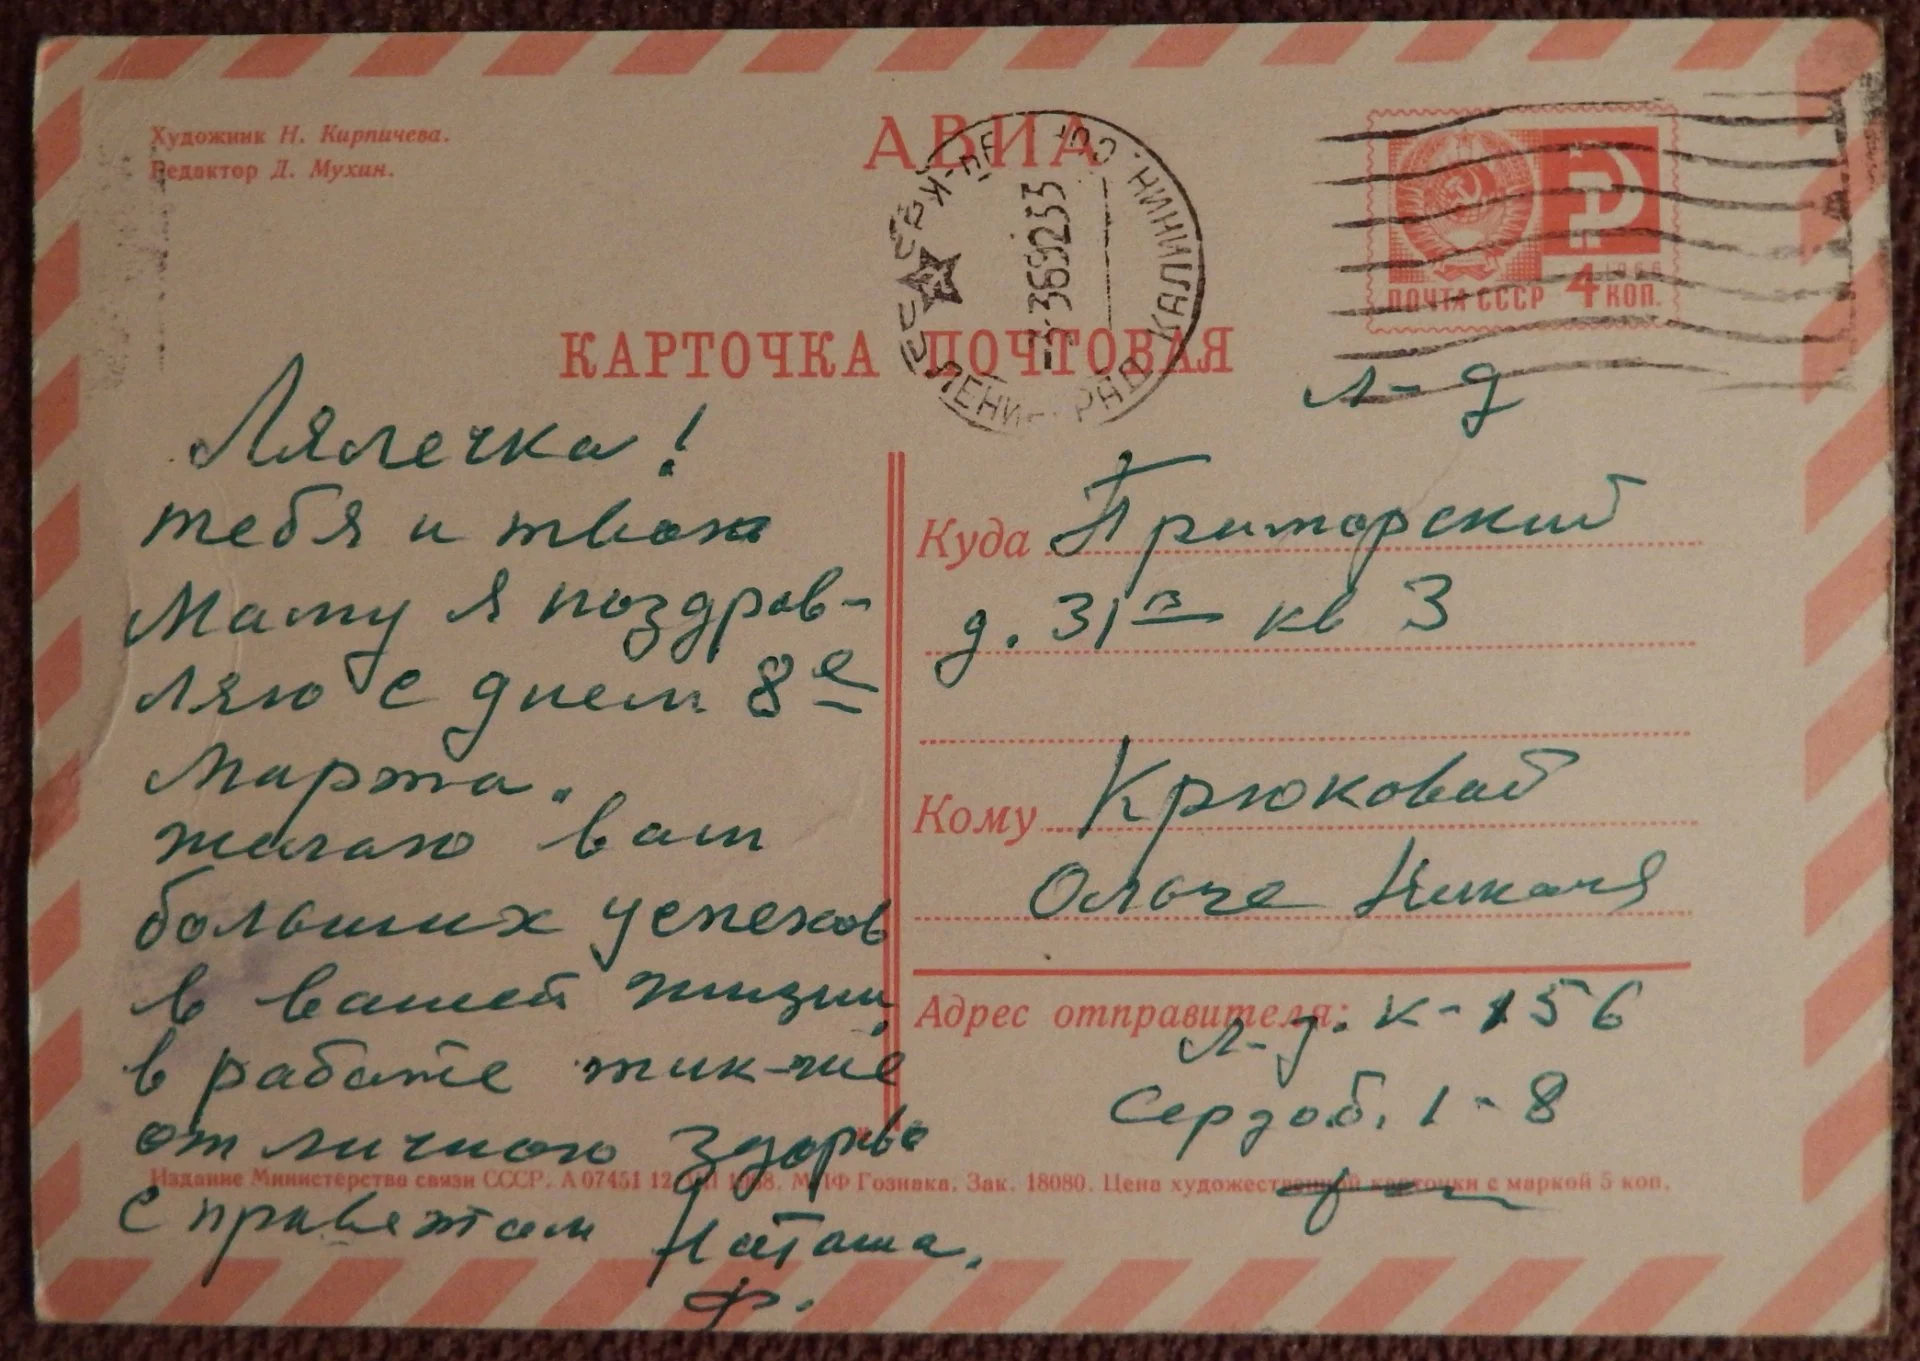 Художник Н. Кирпичева.
Редактор Д. Мухин.
АВИА
КАРТОЧКА ПОЧТОВАЯ
ПОЧТА СССР 4 КОП.
1966
ЛЕНИНГРАД КАЛИНИН.
-3369233
Лялечка!
тебя и твою
Маму я поздрав-
ляю с днем 8е
Марта.
желаю вам
больших успехов
в вашей жизни,
в работе так-же
отличного здоровья
с приветом Наташа.
Ф.
Л-д
Куда Приморский
д. 31 кв 3
Кому Крюковой
Ольге
Адрес отправителя:
Л-д. К-156
Сердоб. 1-8
Издание Министерства связи СССР. А 07451 12 1968. МПФ Гознака. Зак. 18080. Цена художественной карточки с маркой 5 коп.